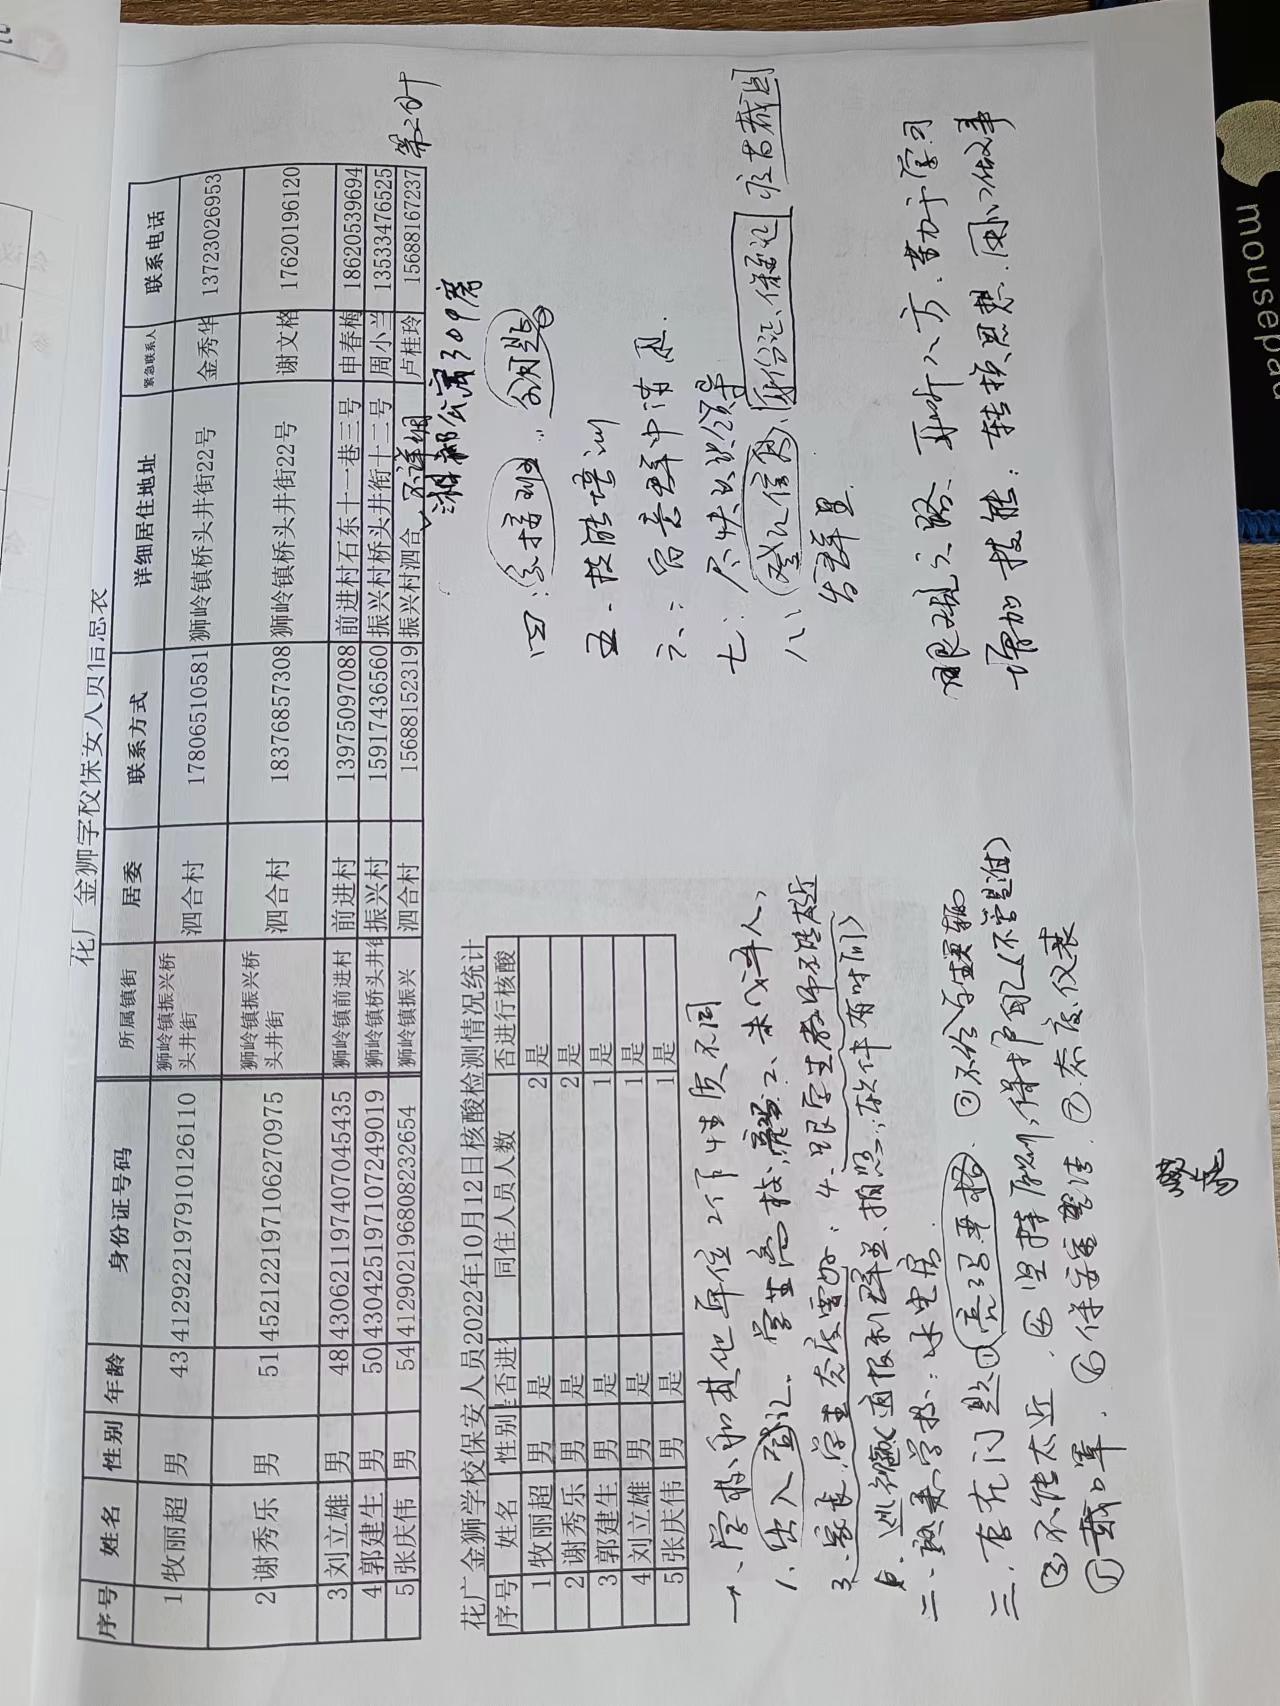 花广金狮学校保安人员信息表
序号 姓名 性别 年龄 身份证号码 所属镇街 居委 联系方式 详细居住地址 紧急联系人 联系电话
1 牧丽超 男 43 412922197910126110 狮岭镇振兴桥头井街 泗合村 17806510581 狮岭镇桥头井街22号 金秀华 13723026953
2 谢秀乐 男 51 452122197106270975 狮岭镇振兴桥头井街 泗合村 18376857308 狮岭镇桥头井街22号 谢文格 17620196120
3 刘立雄 男 48 430621197407045435 狮岭镇前进村 前进村 13975097088 前进村石东十一巷三号 申春梅 18620539694
4 郭建生 男 50 430425197107249019 狮岭镇桥头井街 振兴村 15917436560 振兴村桥头井街十二号 周小兰 13533476525
5 张庆伟 男 54 412902196808232654 狮岭镇振兴 泗合村 15688152319 振兴村泗合 卢桂玲 15688167237
不详细
湘郴公寓309房
花广金狮学校保安人员2022年10月12日核酸检测情况统计
序号 姓名 性别 是否进行 同住人员人数 否进行核酸
1 牧丽超 男 是 2 是
2 谢秀乐 男 是 2 是
3 郭建生 男 是 1 是
4 刘立雄 男 是 1 是
5 张庆伟 男 是 1 是
一、学校和其他单位工作性质不同
1、出入登记. 学生离校 2、未成年人,
3、家长、学生态度要好. 4、跟学生教师不能太近
通报到群里、拍照:软件有时间
二、熟悉学校:水电房.
三、存在问题 ①亮码要严格. ②不给学生
③不能太近. ④坚持原则,保护自己(不
⑤戴口罩. ⑥保安室整洁. ⑦态度、仪表
四:
五. 技能培训
六:留意群中消息.
七:尽快认识领导
八:登记信息、身份证、保安证 疫苗截图
发群里.
眼观六路、耳听八方、善于学习
增加技能:转换思想.用心做事
mousepad